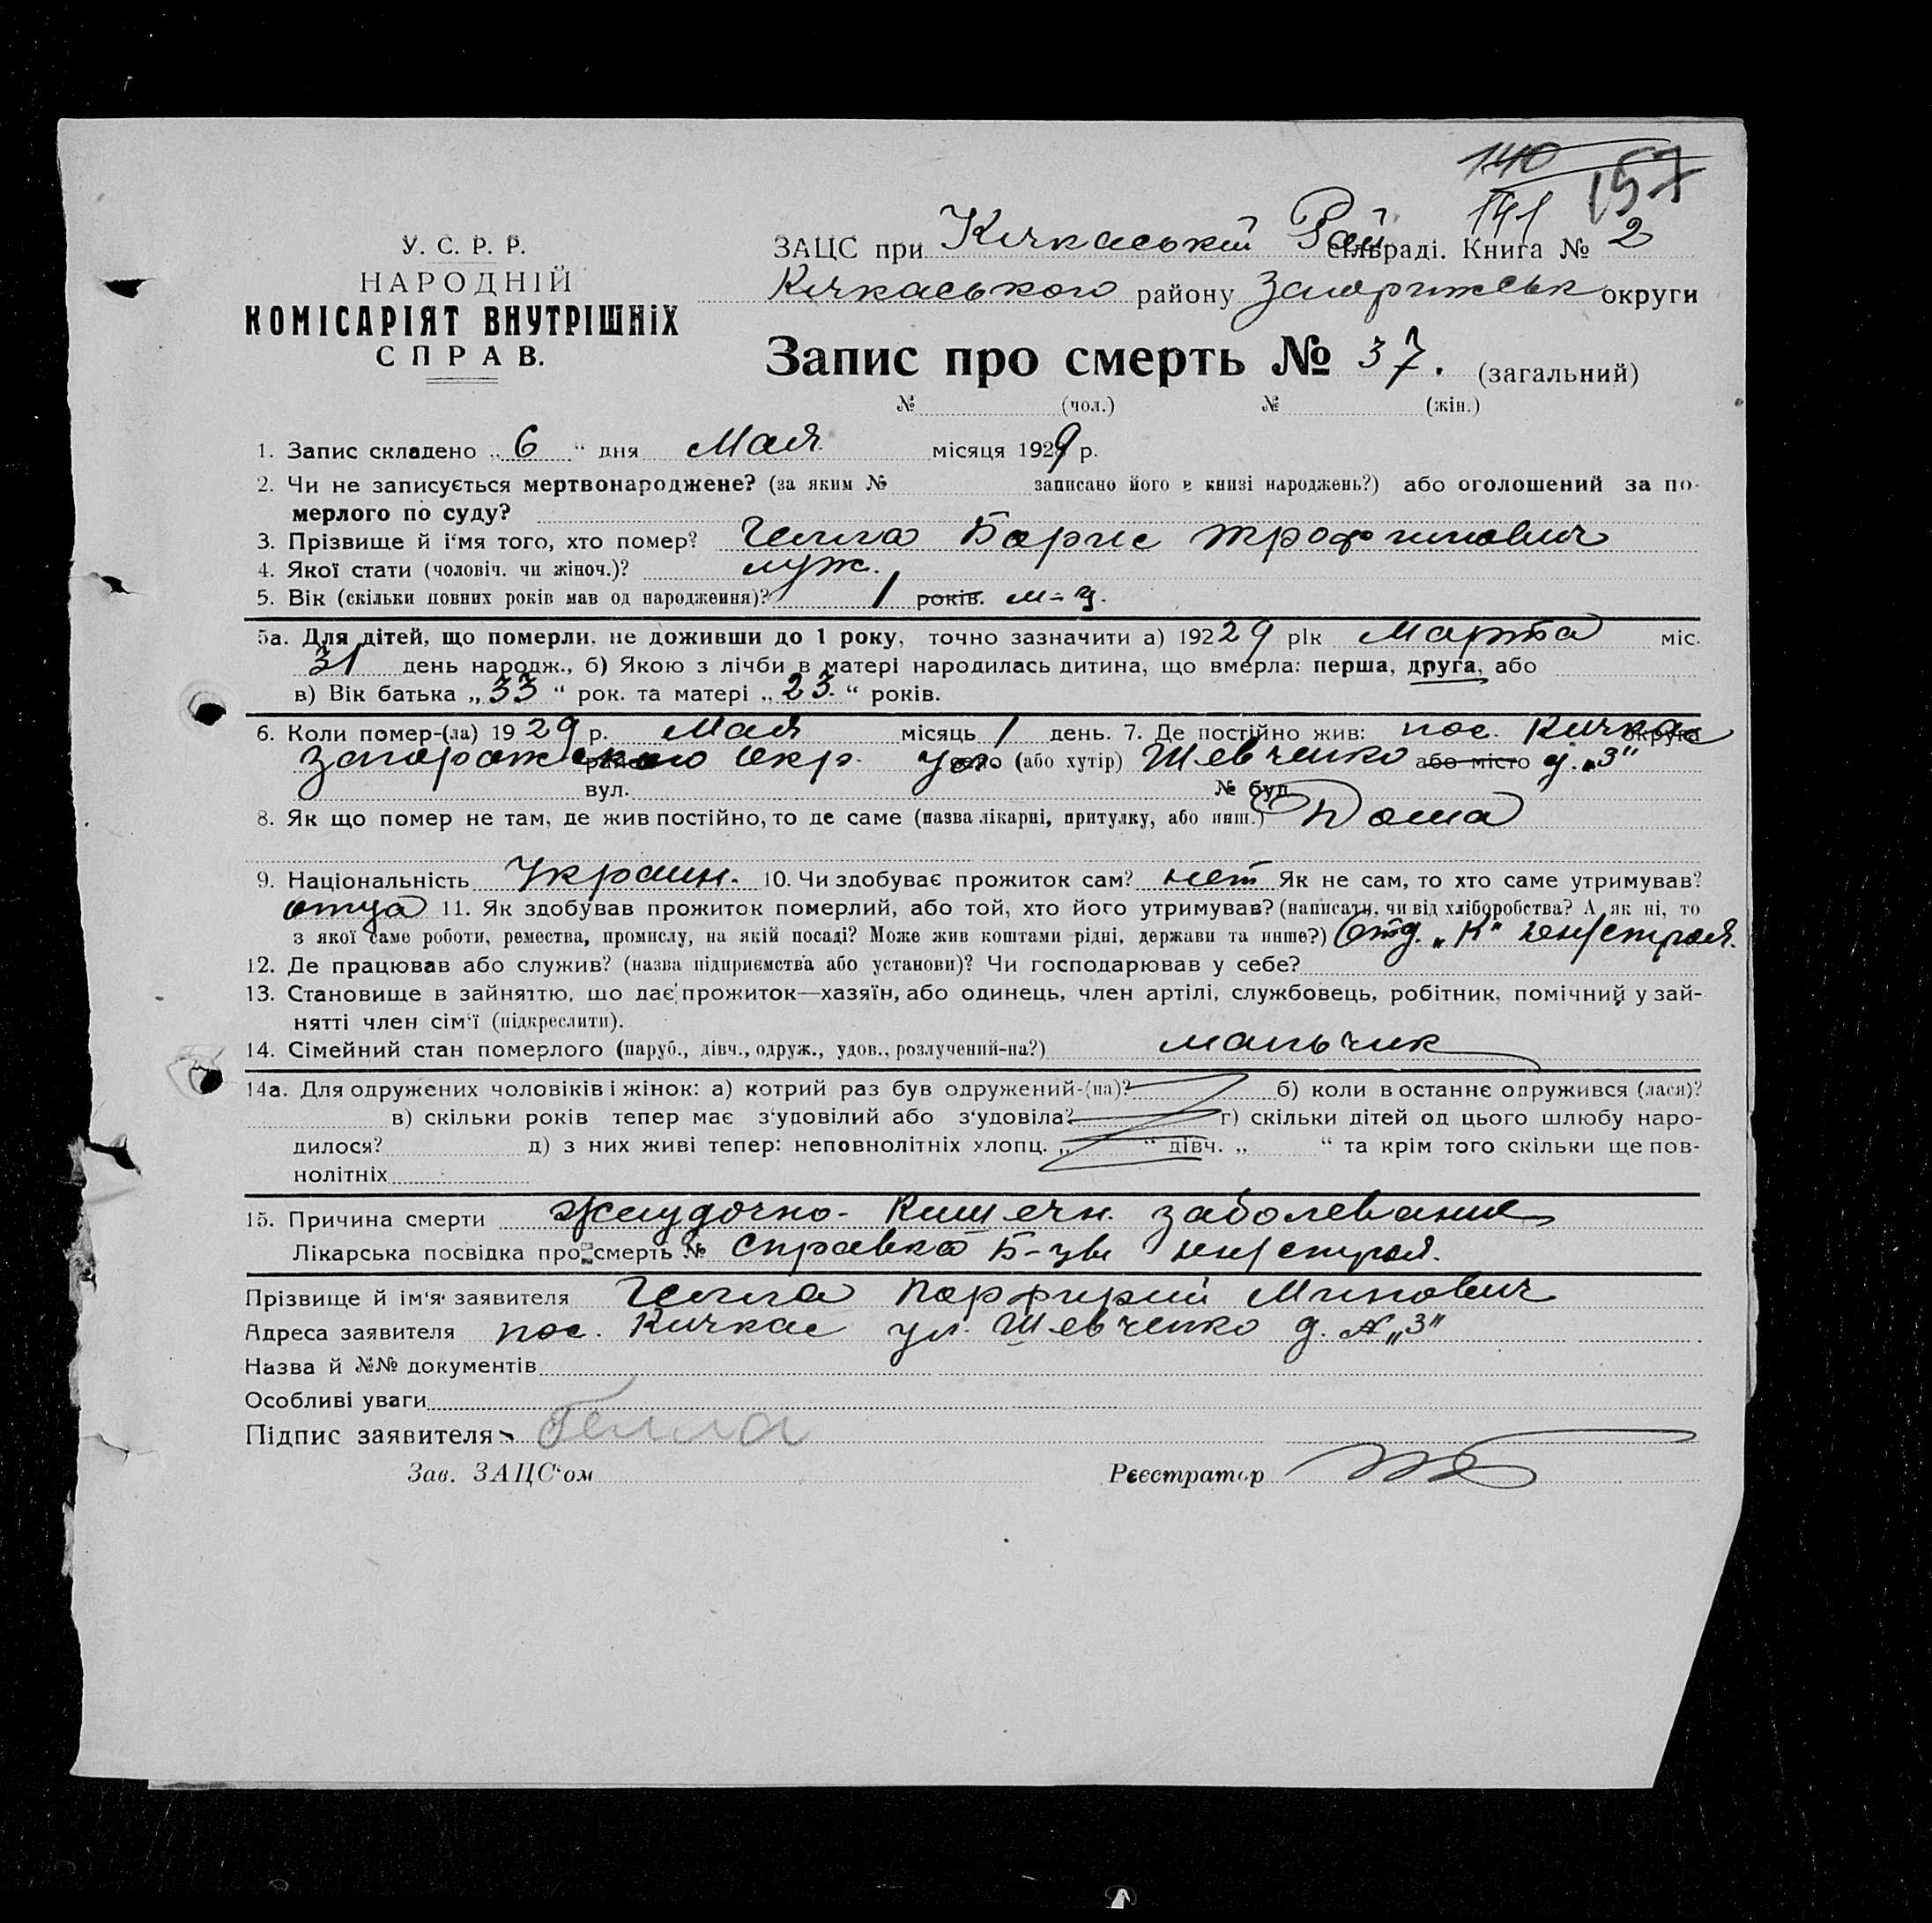 140
141 157
У. С. Р. Р.
НАРОДНІЙ
КОМІСАРІЯТ ВНУТРІШНІХ
СПРАВ.
ЗАЦС при Кічкаській Рай сільраді. Книга № 2
Кічкаського району Запоріжськ округи
Запис про смерть № 37. (загальний)
№ (чол.) № (жін.)
1. Запис складено „ 6 “ дня Мая місяця 1929 р.
2. Чи не записується мертвонароджене? (за яким № записано його в книзі народжень?) або оголошений за по-
мерлого по суду?
3. Прізвище й і‘мя того, хто помер? Борис
4. Якої стати (чоловіч. чи жіноч.)? муж.
5. Вік (скільки повних років мав од народження)? 1 років. м-ц.
5а. Для дітей, що померли, не доживши до 1 року, точно зазначити а) 19229 рік Марта міс.
31 день народж., б) Якою з лічби в матері народилась дитина, що вмерла: перша, друга, або
в) Вік батька „ 33 “ рок. та матері „ 23 “ років.
6. Коли помер-(ла) 1929 р. Мая місяць 1 день. 7. Де постійно жив: пос. Кичкас округа
Запорожского район Окр. ул. село (або хутір) Шевченко або місто д. „3“
вул. № буд.
8. Як що помер не там, де жив постійно, то де саме (назва лікарні, притулку, або инш.) Дома
9. Національність Украин. 10. Чи здобуває прожиток сам? нет Як не сам, то хто саме утримував?
отца 11. Як здобував прожиток померлий, або той, хто його утримував? (написати, чи від хліборобства? А як ні, то
з якої саме роботи, ремества, промислу, на якій посаді? Може жив коштами рідні, держави та инше?) Отд. „К“
12. Де працював або служив? (назва підприємства або установи)? Чи господарював у себе?
13. Становище в зайняттю, що дає прожиток—хазяїн, або одинець, член артілі, службовець, робітник, помічний у зай-
нятті член сім‘ї (підкреслити).
14. Сімейний стан померлого (паруб., дівч., одруж., удов., розлучений-на?) мальчик
14а. Для одружених чоловіків і жінок: а) котрий раз був одружений-(на)? б) коли востаннє одружився (лася)?
в) скільки років тепер має з‘удовілий або з‘удовіла? г) скільки дітей од цього шлюбу наро-
дилося? д) з них живі тепер: неповнолітніх хлопц. „ “ дівч. „ “ та крім того скільки ще пов-
нолітніх
15. Причина смерти Желудочно-Кишечн. заболевание
Лікарська посвідка про смерть № Справка Б-цы
Прізвище й ім'я заявителя Порфирий Минович
Адреса заявителя пос. Кичкас ул. Шевченко д. № „3“
Назва й №№ документів
Особливі уваги
Підпис заявителя
Зав. ЗАЦС‘ом Реєстратор